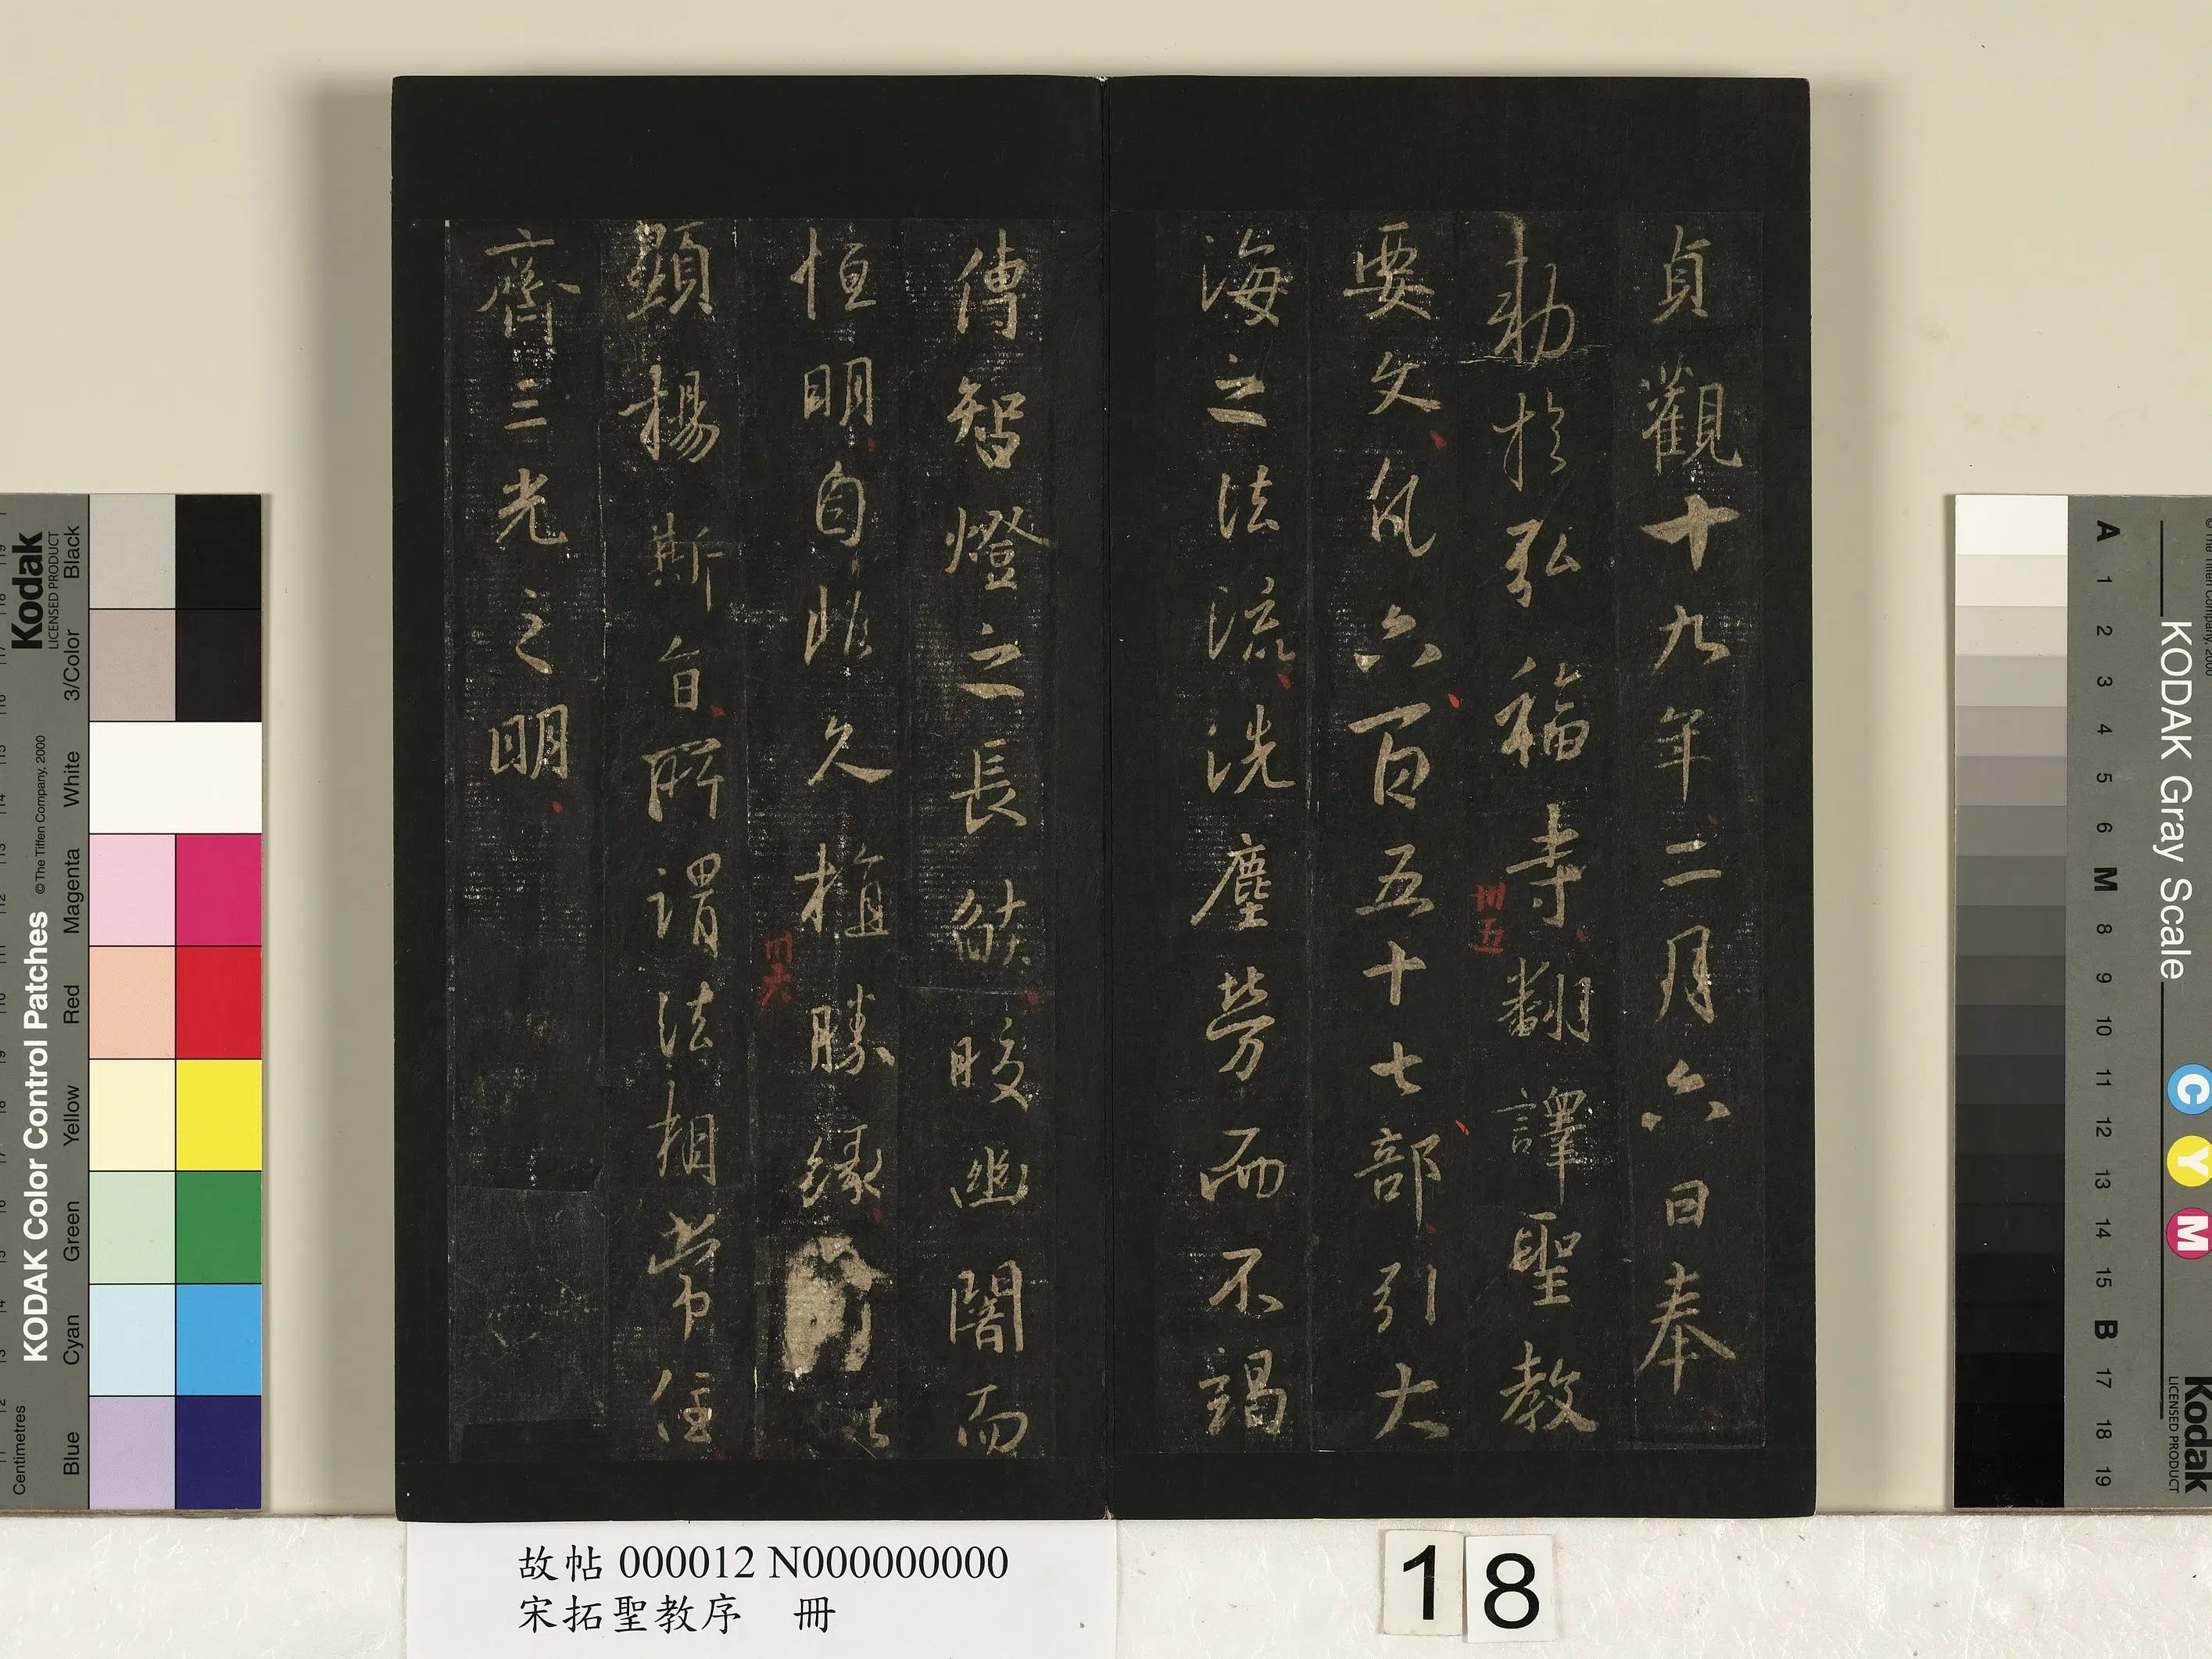 貞觀十九年二月六日奉
勅於弘福寺翻譯聖教
卅五
要文凡六百五十七部引大
海之法流洗塵勞而不竭
傳智燈之長焰皎幽闇而
恒明自非久植勝緣以
卅六
顯揚斯旨所謂法相常住
齊三光之明
故帖 000012 N000000000
宋拓聖教序 冊
18
KODAK Color Control Patches
© The Tiffen Company, 2000
Kodak
LICENSED PRODUCT
Centimetres
Blue
Cyan
Green
Yellow
Red
Magenta
White
3/Color
Black
KODAK Gray Scale
Kodak
LICENSED PRODUCT
C
Y
M
A 1 2 3 4 5 6 M 8 9 10 11 12 13 14 15 B 17 18 19